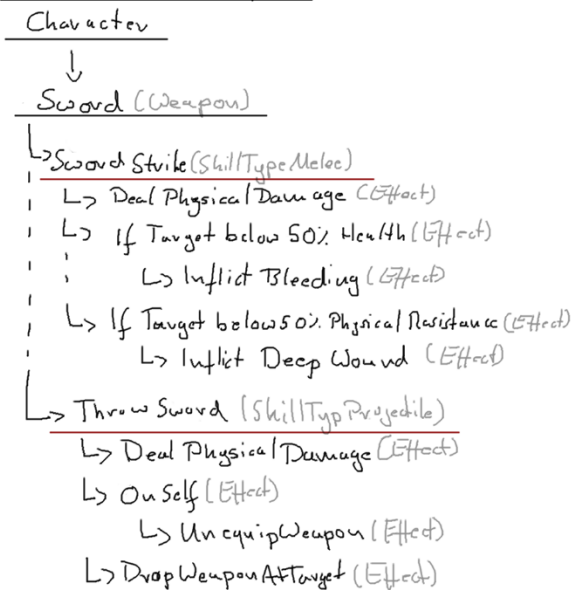 Character
Sword (Weapon)
Sword Strike (SkillTypeMelee)
Deal Physical Damage (Effect)
If Target below 50% Health (Effect)
Inflict Bleeding (Effect)
If Target below 50% Physical Resistance (Effect)
Inflict Deep Wound (Effect)
Throw Sword (SkillTypProjectile)
Deal Physical Damage (Effect)
OnSelf (Effect)
UnequipWeapon (Effect)
DropWeaponAtTarget (Effect)